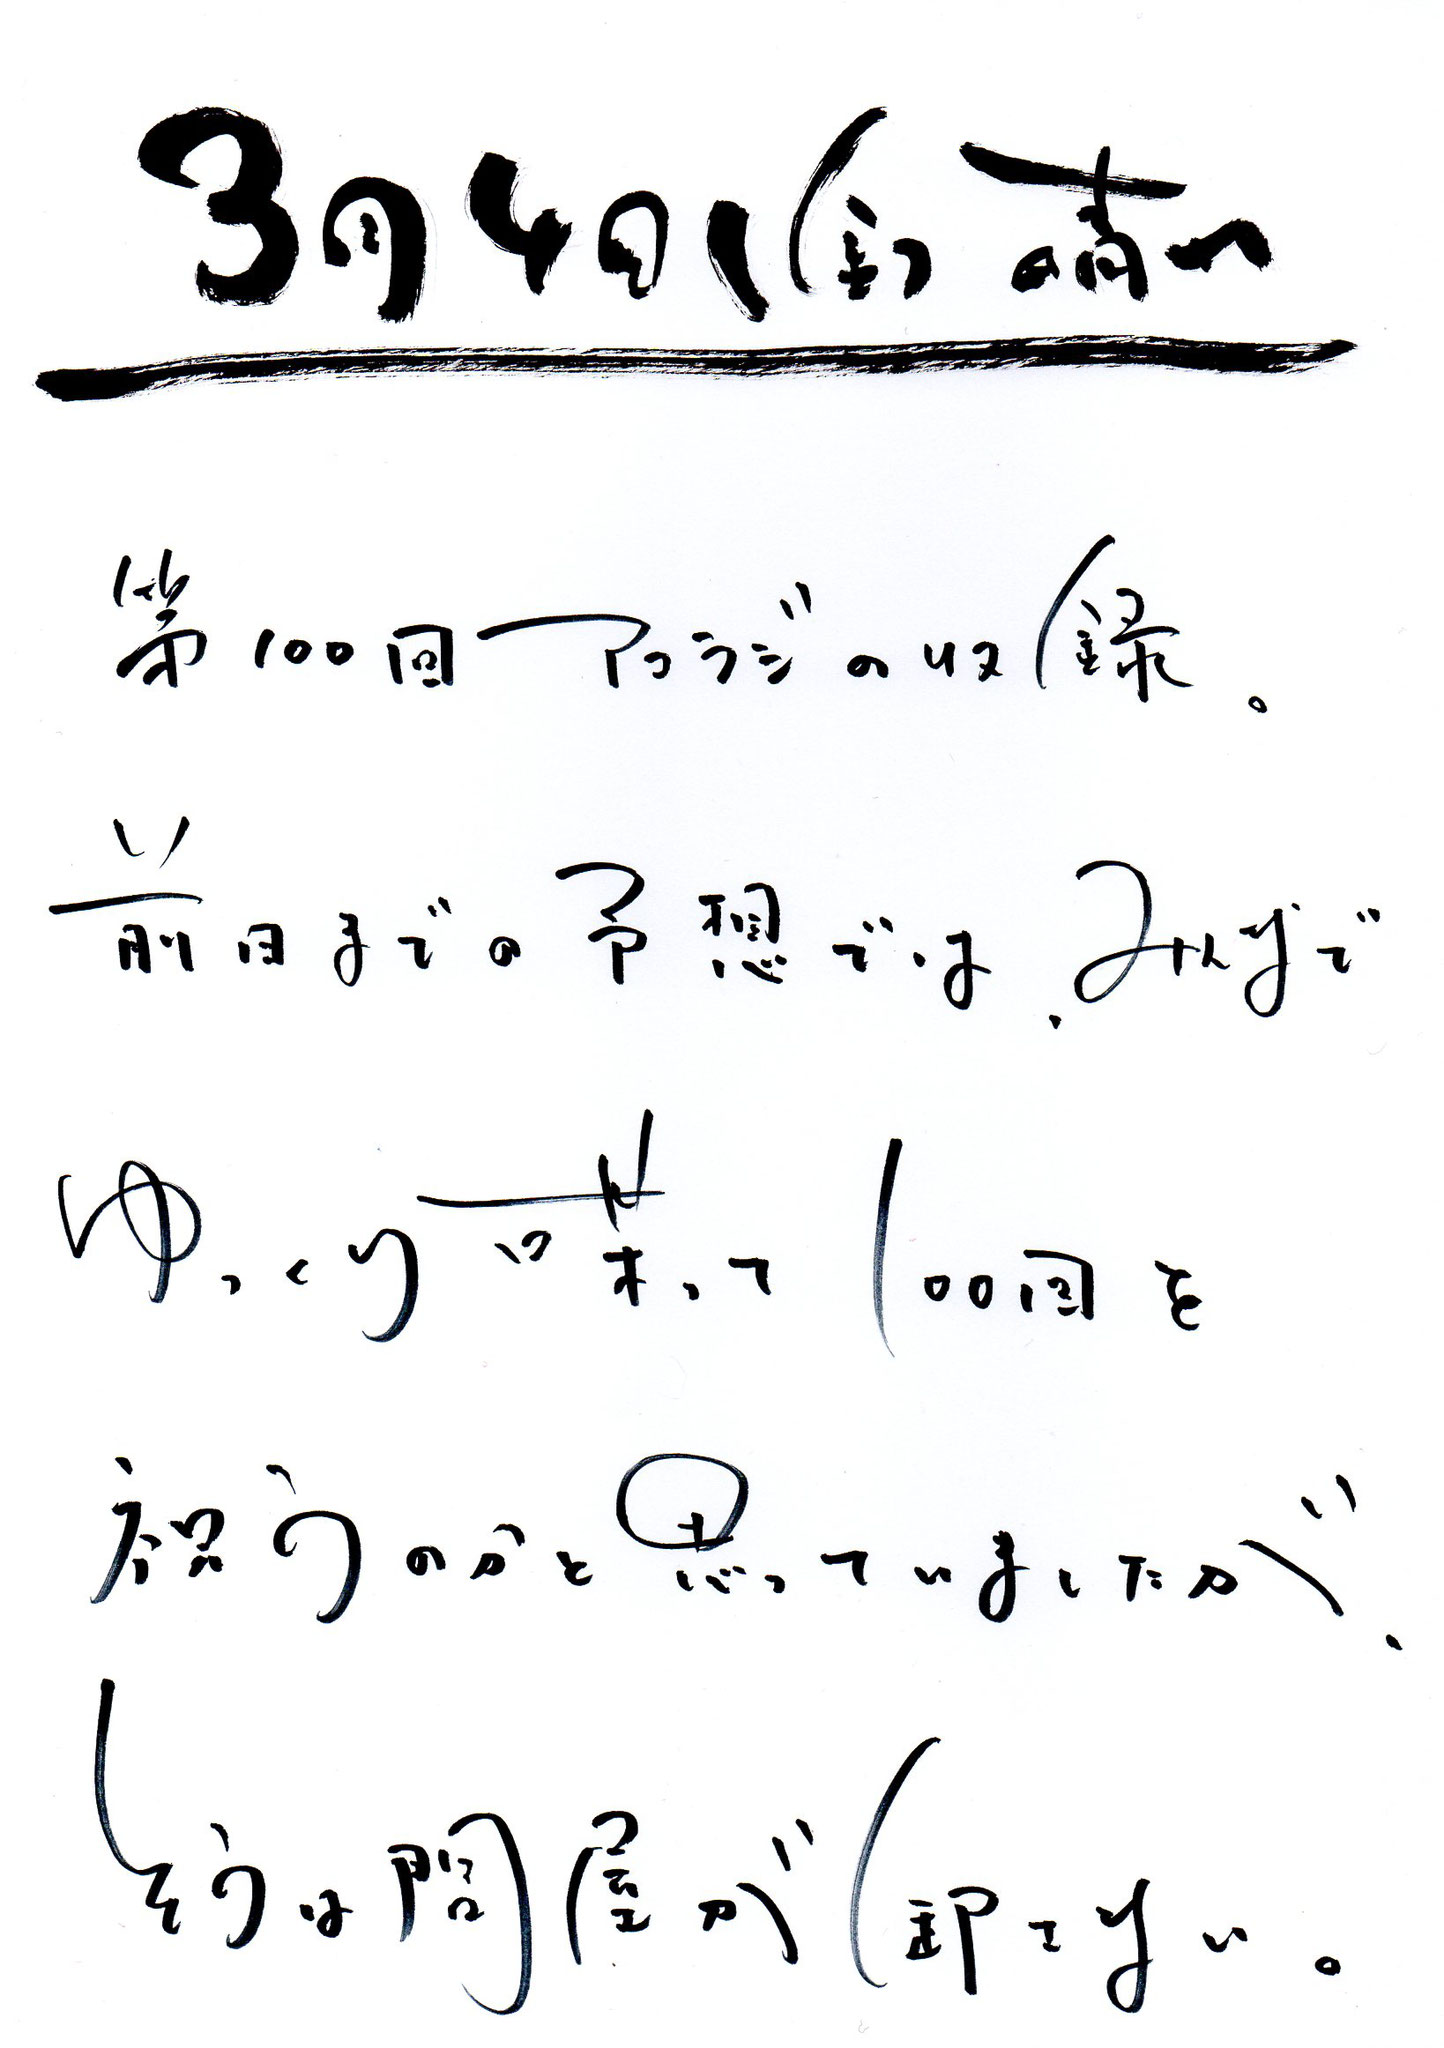 3月4日(金) 晴れ
第100回アコラジの収録。
前日までの予想では、みんなで
ゆっくり語って100回を
祝うのかと思っていましたが、
そうは問屋が卸さない。